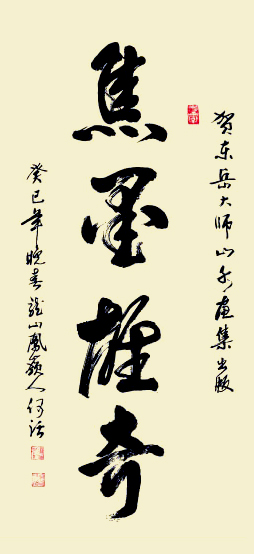 贺东岳大师山水画集出版
焦墨雄奇
癸巳年晚春龙山凤岭人何话